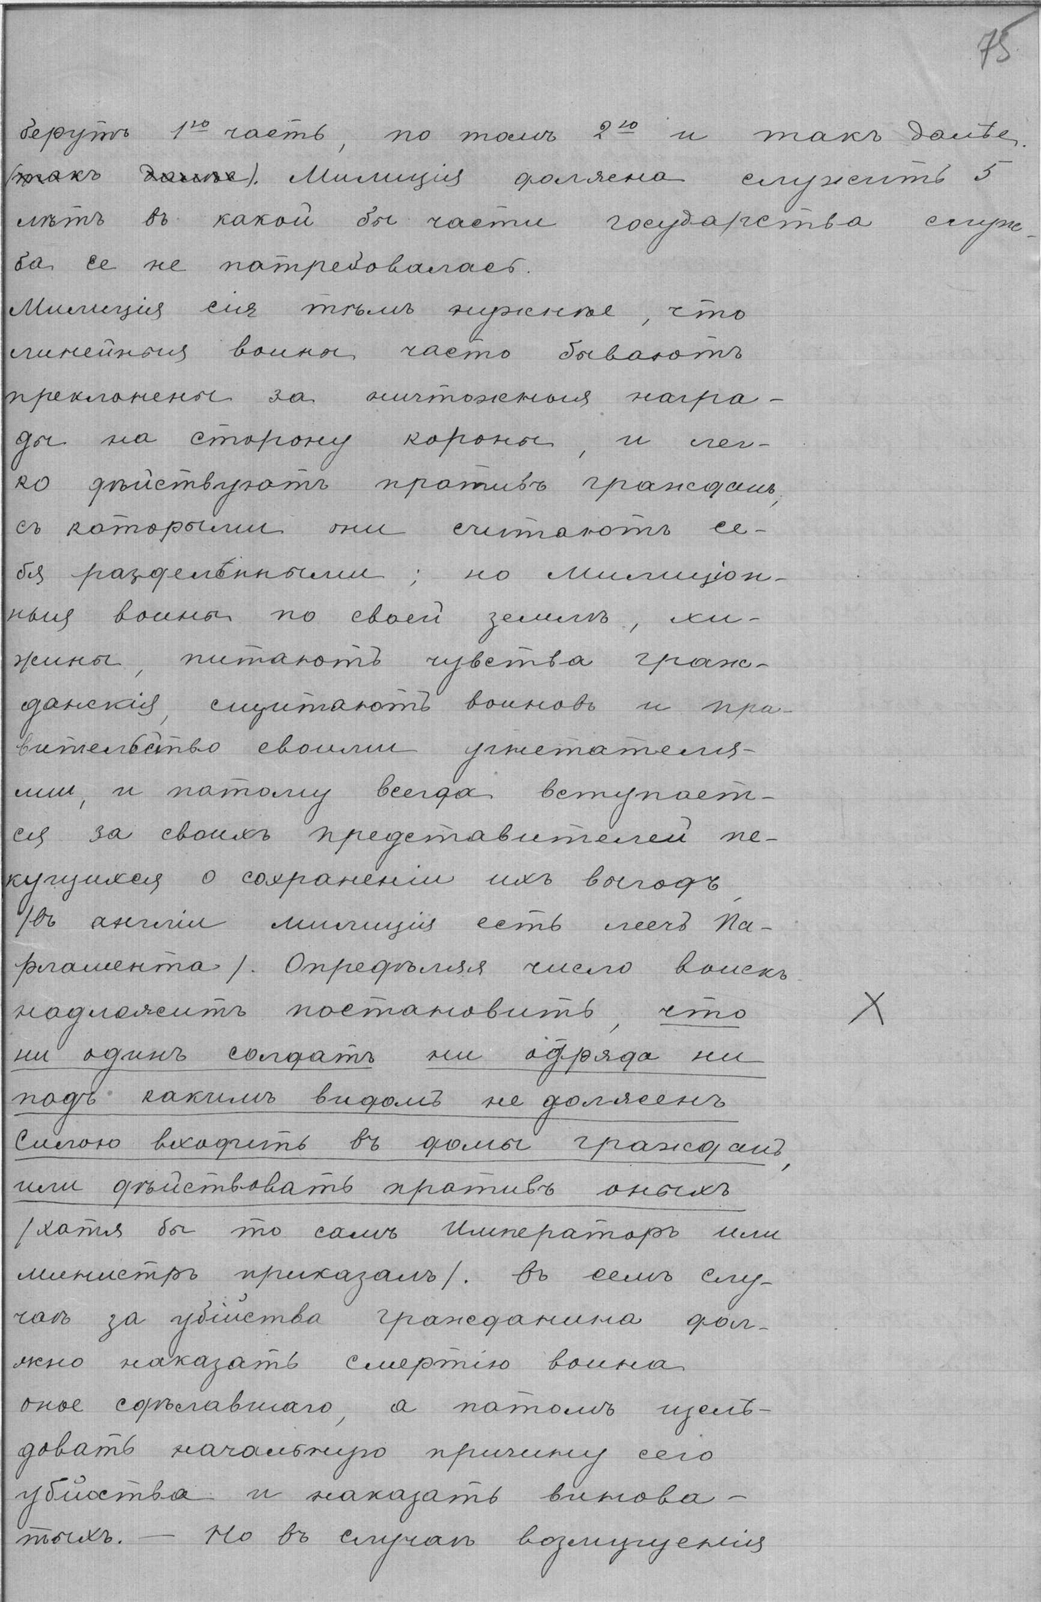 75
берутъ 1ю часть, по томъ 2ю и такъ далѣе.
(такъ далѣе). Милиція должна служить 5
лѣтъ въ какой бы части государства служ-
ба ее не потребовалась.
Милиція сія тѣмъ нужнѣе, что
линейныя воины часто бываютъ
преклонены за ничтожныя награ-
ды на сторону короны, и лег-
ко дѣйствуютъ противъ гражданъ,
съ которыми они считаютъ се-
бя раздѣленными; но милиціон-
ныя воины по своей землѣ, хи-
жины, питаютъ чувства граж-
данскія, считаютъ воиновъ и пра-
вительство своими угнетателя-
ми, и потому всегда вступает-
ся за своихъ представителей пе-
кущихся о сохраненіи ихъ выгодъ
/въ англіи милиція есть мечъ Па-
рламента/. Опредѣляя число воискъ
надлежитъ постановить, что
ни одинъ солдатъ ни отряда ни
подъ какимъ видомъ не долженъ
силою входить въ домы гражданъ,
или дѣйствовать противъ оныхъ
/хотя бы то самъ Императоръ или
министръ приказалъ/. Въ семъ слу-
чаѣ за убійства гражданина дол-
жно наказать смертію воина
оное сдѣлавшаго, а потомъ изслѣ-
довать начальную причину сего
убійства и наказать винова-
тыхъ. — Но въ случаѣ возмущенія